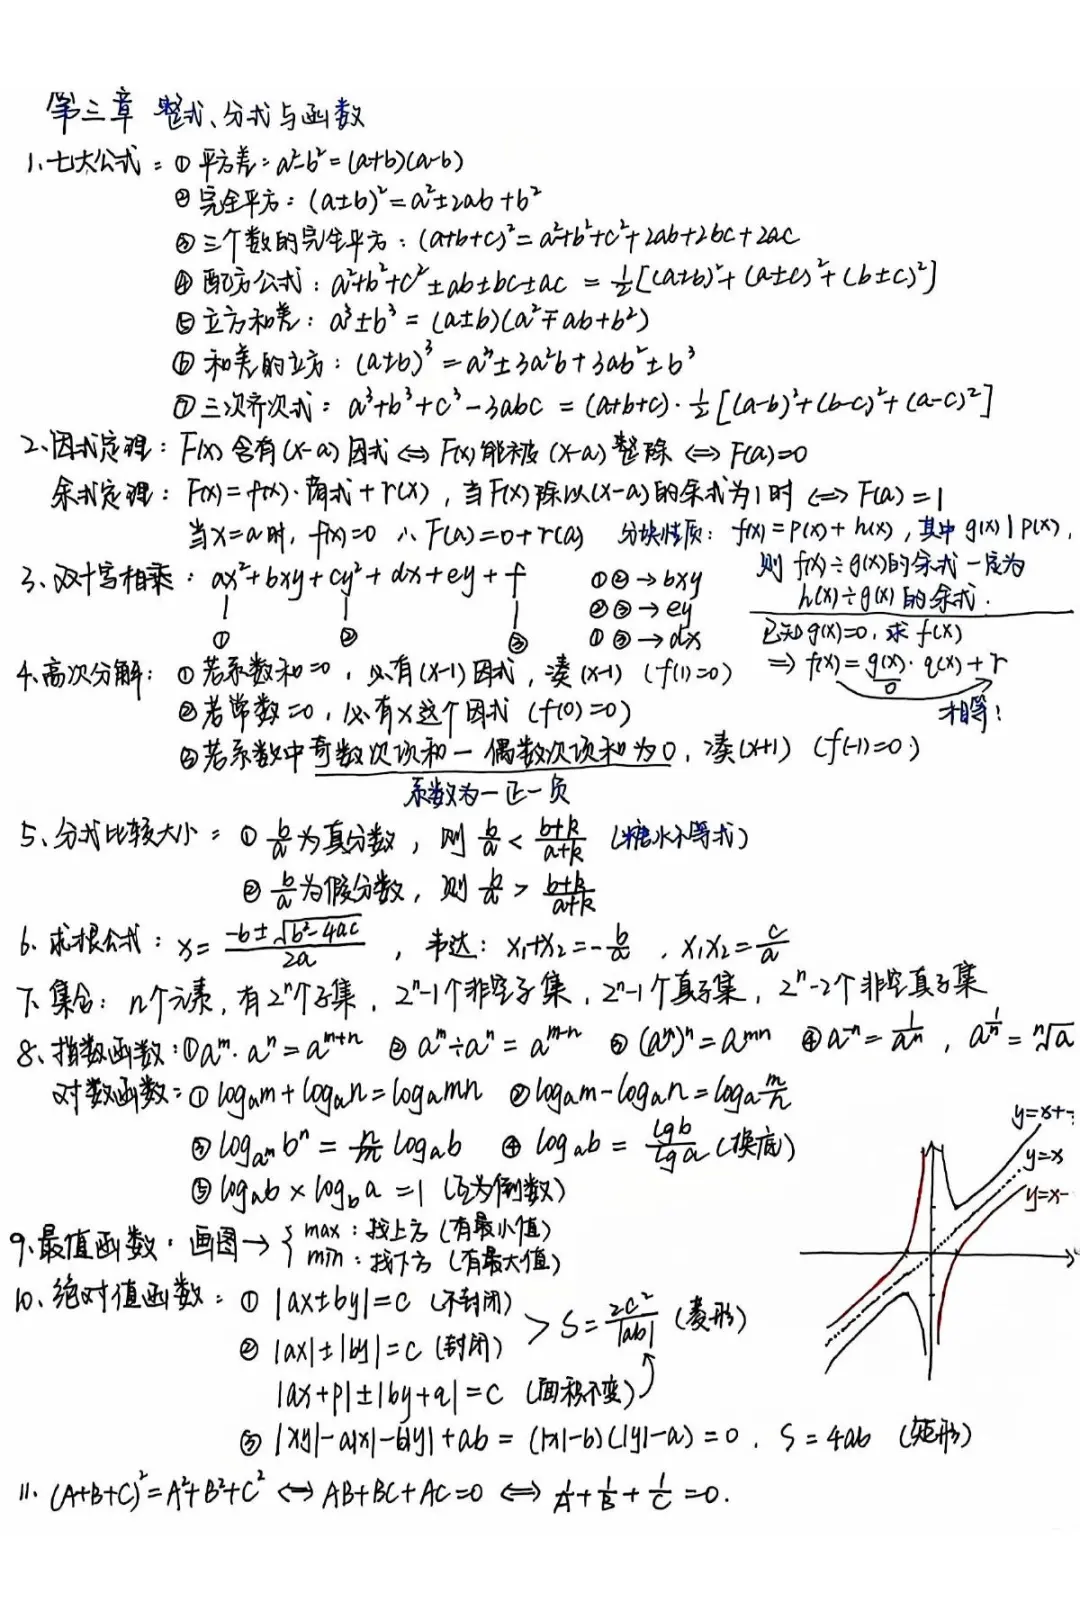 第三章 整式、分式与函数
1、七大公式：① 平方差：a²-b²=(a+b)(a-b)
② 完全平方：(a±b)²=a²±2ab+b²
③ 三个数的完全平方：(a+b+c)²=a²+b²+c²+2ab+2bc+2ac
④ 配方公式：a²+b²+c²±ab±bc±ac = ½[(a±b)²+(a±c)²+(b±c)²]
⑤ 立方和差：a³±b³=(a±b)(a²∓ab+b²)
⑥ 和差的立方：(a±b)³=a³±3a²b+3ab²±b³
⑦ 三次齐次式：a³+b³+c³-3abc = (a+b+c)·½[(a-b)²+(b-c)²+(a-c)²]
2、因式定理：F(x)含有(x-a)因式⇔F(x)能被(x-a)整除⇔F(a)=0
余式定理：F(x)=f(x)·商式+r(x)，当F(x)除以(x-a)的余式为1时⇔F(a)=1
当x=a时，f(x)=0 ∴F(a)=0+r(a)
分块性质：f(x)=p(x)+h(x)，其中g(x)|p(x)，
则f(x)÷g(x)的余式一定为
h(x)÷g(x)的余式.
3、双十字相乘：ax²+bxy+cy²+dx+ey+f
① ② ③
①②→bxy
②③→ey
①③→dx
已知g(x)=0，求f(x)
⇒f(x)=g(x)·q(x)+r
0
相等！
4、高次分解：①若系数和=0，必有(x-1)因式，凑(x-1) (f(1)=0)
②若常数=0，必有x这个因式 (f(0)=0)
③若系数中奇数次项和一偶数次项和为0，凑(x+1) (f(-1)=0)
系数为一正一负
5、分式比较大小：① b/a为真分数，则b/a<(b+k)/(a+k) (糖水不等式)
② b/a为假分数，则b/a>(b+k)/(a+k)
6、求根公式：x=(-b±√(b²-4ac))/2a，韦达：x₁+x₂=-b/a，x₁x₂=c/a
7、集合：n个元素，有2ⁿ个子集，2ⁿ-1个非空子集，2ⁿ-1个真子集，2ⁿ-2个非空真子集
8、指数函数：①aᵐ·aⁿ=aᵐ⁺ⁿ ②aᵐ÷aⁿ=aᵐ⁻ⁿ ③(aᵐ)ⁿ=aᵐⁿ ④a⁻ⁿ=1/aⁿ，a^(1/n)=ⁿ√a
对数函数：①logₐm+logₐn=logₐmn ②logₐm-logₐn=logₐ(m/n)
③log_(aᵐ)bⁿ=(n/m)logₐb ④logₐb=lgb/lga (换底)
⑤logₐb×log_b a=1 (互为倒数)
y=x+
y=x
y=x-
9、最值函数：画图→{max：找上方(有最小值)
min：找下方(有最大值)
10、绝对值函数：①|ax±by|=c (不封闭)
②|ax|±|by|=c (封闭)
> S=2c²/|ab| (菱形)
|ax+p|±|by+q|=c (面积不变)
③|xy|-a|x|-b|y|+ab=(|x|-b)(|y|-a)=0. S=4ab (矩形)
11、(A+B+C)²=A²+B²+C²⇔AB+BC+AC=0⇔1/A+1/B+1/C=0.